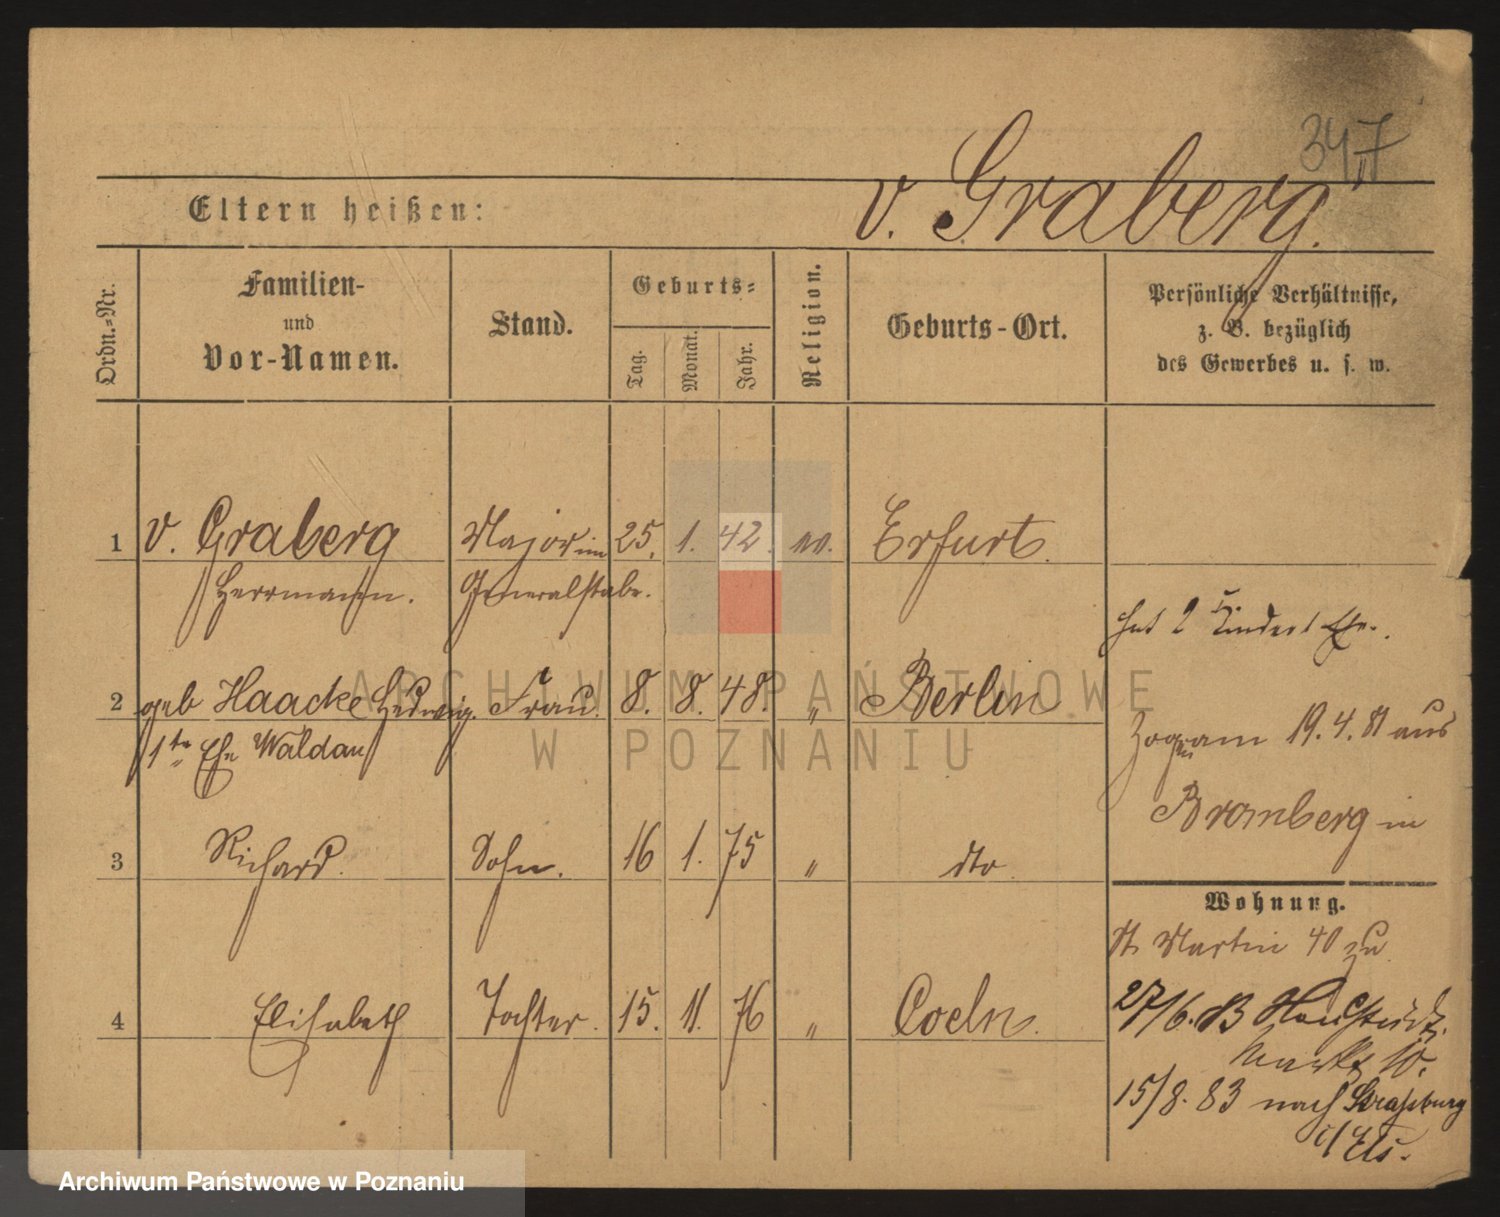 347
Eltern heißen:
v. Graberg.
Ordn.=Nr.
Familien-
und
Vor-Namen.
Stand.
Geburts=
Tag.
Monat.
Jahr.
Religion.
Geburts-Ort.
Persönliche Verhältnisse,
z. B. bezüglich
des Gewerbes u. s. w.
1 v. Graberg Major im 25. 1. 42. ev. Erfurt.
Herrmann. Generalstabe.
hat 2 Kinder 1 Ehe.
2 geb Haacke Hedwig. Frau. 8. 8. 48. " Berlin
1te Ehe Waldau
19. 4. 81 aus
Bromberg in
3 Richard. Sohn. 16 1. 75 " dto
Wohnung.
St. Martin 40 zu
4 Elisabeth Tochter. 15. 11. 76 " Coeln.
27/6. 83
Markt 10.
15/8. 83 nach Straßburg
i/Els.
ARCHIWUM PAŃSTWOWE
W POZNANIU
Archiwum Państwowe w Poznaniu